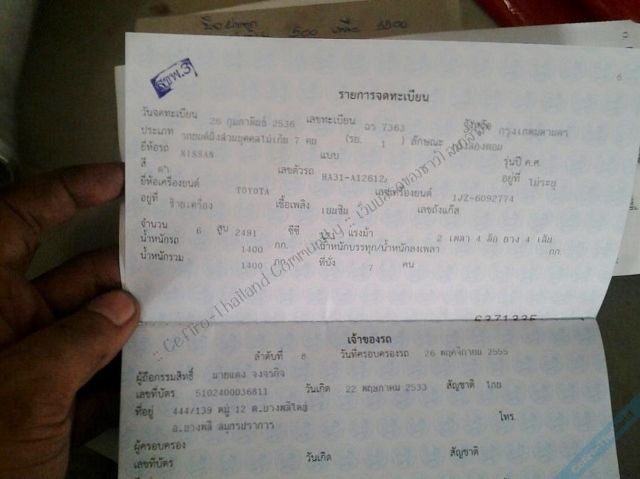 500 3500
สขพ.3
6
รายการจดทะเบียน
วันจดทะเบียน 26 กุมภาพันธ์ 2536 เลขทะเบียน 7363 กรุงเทพมหานคร
ประเภท รถยนต์นั่งส่วนบุคคลไม่เกิน 7 คน (รย. 1 ) ลักษณะ
ยี่ห้อรถ NISSAN แบบ รุ่นปี ค.ศ.
สี ดำ เลขตัวรถ HA31-A12612 อยู่ที่ ไม่ระบุ
ยี่ห้อเครื่องยนต์ TOYOTA เลขเครื่องยนต์ 1JZ-6092774
อยู่ที่ เชื้อเพลิง เบนซิน เลขถังแก๊ส
จำนวน 6 สูบ 2491 ซีซี แรงม้า 2 เพลา 4 ล้อ ยาง 4 เส้น
น้ำหนักรถ 1400 กก. น้ำหนักบรรทุก/น้ำหนักลงเพลา กก.
น้ำหนักรวม 1400 กก. ที่นั่ง 7 คน
:: Cefiro-Thailand Community ::
เจ้าของรถ
ลำดับที่ 8 วันที่ครอบครองรถ 26 พฤศจิกายน 2555
ผู้ถือกรรมสิทธิ์ นายแดง จงจรกิจ
เลขที่บัตร 5102400036811 วันเกิด 22 พฤษภาคม 2533 สัญชาติ ไทย
ที่อยู่ 444/139 หมู่ 12 ต.บางพลีใหญ่ โทร.
อ.บางพลี สมุทรปราการ
ผู้ครอบครอง
เลขที่บัตร วันเกิด สัญชาติ